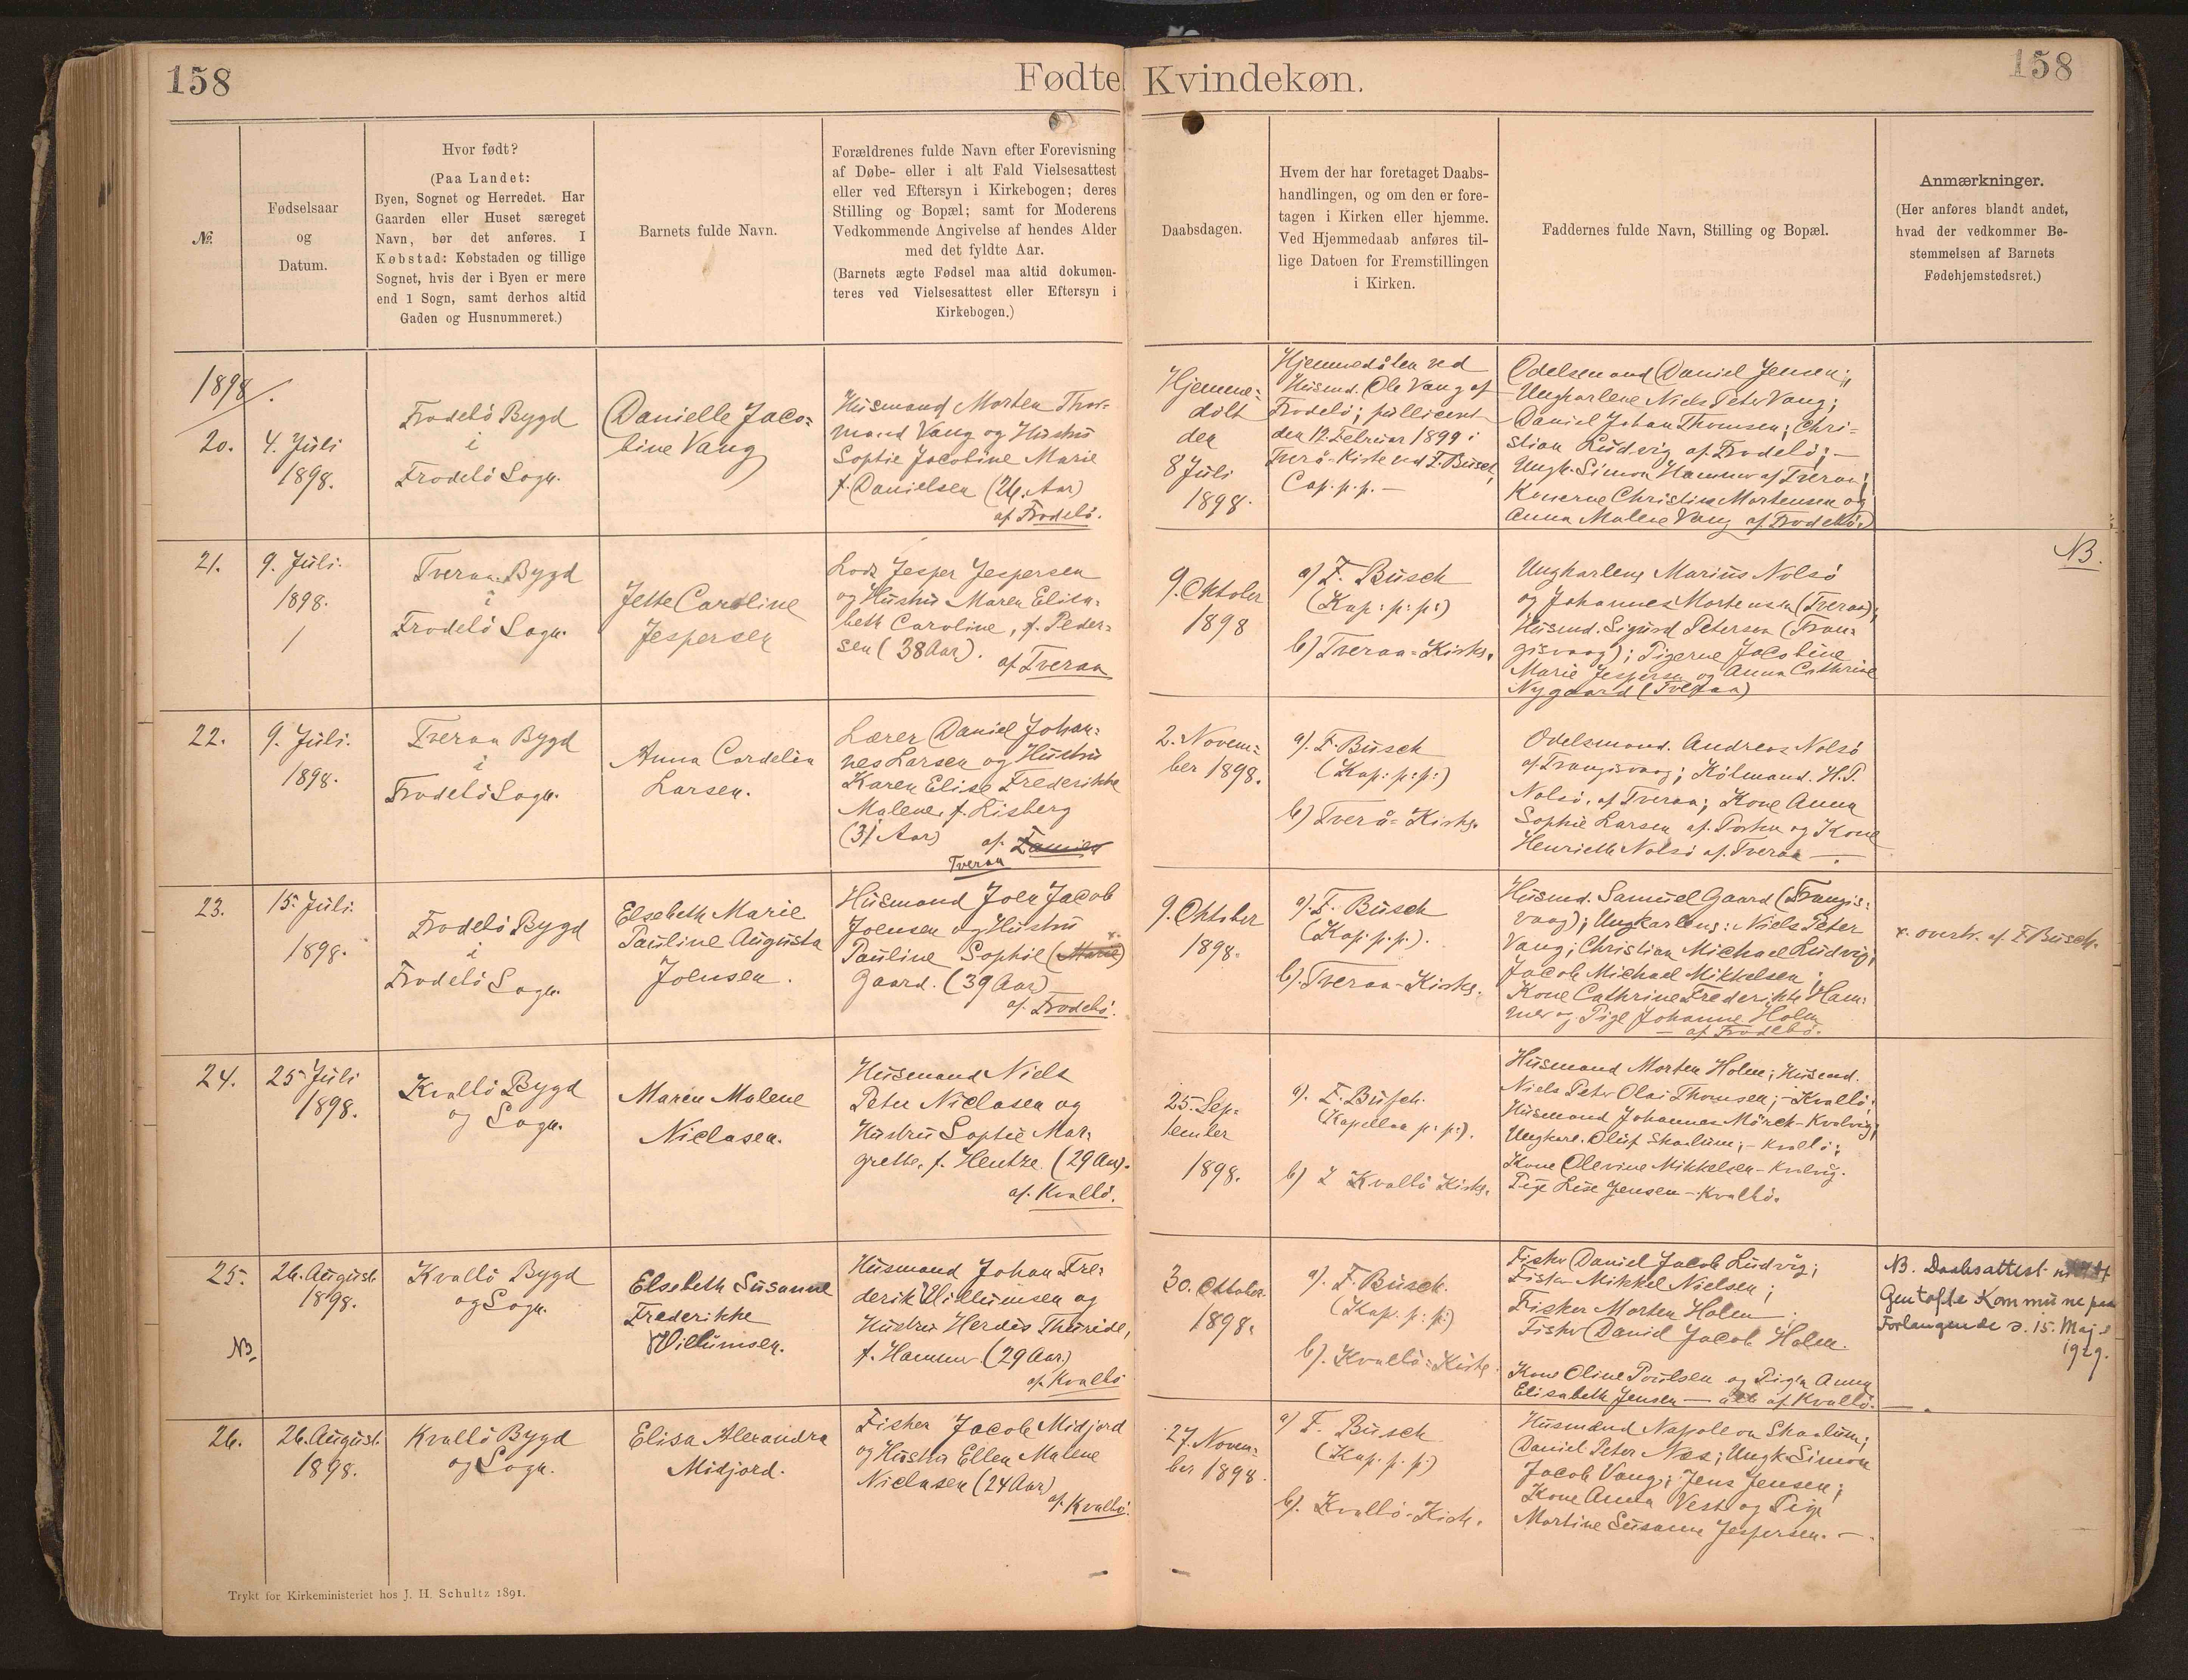 158
Fødte Kvindekøn.
158
№.
Fødselsaar
og
Datum.
Hvor født?
(Paa Landet:
Byen, Sognet og Herredet. Har
Gaarden eller Huset særeget
Navn, bør det anføres. I
Købstad: Købstaden og tillige
Sognet, hvis der i Byen er mere
end 1 Sogn, samt derhos altid
Gaden og Husnummeret.)
Barnets fulde Navn.
Forældrenes fulde Navn efter Forevisning
af Døbe- eller i alt Fald Vielsesattest
eller ved Eftersyn i Kirkebogen; deres
Stilling og Bopæl; samt for Moderens
Vedkommende Angivelse af hendes Alder
med det fyldte Aar.
(Barnets ægte Fødsel maa altid dokumen-
teres ved Vielsesattest eller Eftersyn i
Kirkebogen.)
Daabsdagen.
Hvem der har foretaget Daabs-
handlingen, og om den er fore-
tagen i Kirken eller hjemme.
Ved Hjemmedaab anføres til-
lige Datoen for Fremstillingen
i Kirken.
Faddernes fulde Navn, Stilling og Bopæl.
Anmærkninger.
(Her anføres blandt andet,
hvad der vedkommer Be-
stemmelsen af Barnets
Fødehjemstedsret.)
1898
20.
4. Juli
1898.
Frodebö Bygd
i
Frodebö Sogn.
Danielle Jaco=
bine Vang
Husmand Morten Thor=
mand Vang og Hustru
Sophie Jacobine Marie
f. Danielsen (26 Aar)
af Frodebö.
Hjemme=
döbt
den
8 Juli
1898.
Hjemmedöben ved
Husmd. Ole Vang af
Frodebö;
den 12. Februar 1899 i
Tverå-Kirke ved F. Busch,
Cap. p. p. —
Odelsmand Daniel Jensen;
Ungkarlene Niels Peter Vang;
Daniel Johan Thomsen; Chri=
stian Ludvig af Frodebö; —
Ungk. Simon Hammer af Tveraa;
Konerne Christine Mortensen og
Anna Malene Vang af Frodebö.
21.
9. Juli
1898.
Tveraa Bygd
i
Frodebö Sogn.
Jette Caroline
Jespersen
Lods Jesper Jespersen
og Hustru Maren Elisa=
beth Caroline, f. Peder=
sen (38 Aar).
af Tveraa
9. Oktober
1898
a) F. Busch
(Kap: p: p:)
b) Tveraa-Kirke.
Ungkarlene Marius Nolsö
og Johannes Mortensen (Tveraa);
Husmd. Sigurd Petersen (Tran=
gisvaag); Pigerne Jacobine
Marie Jespersen og Anna Cathrine
Nygaard (Tveraa)
NB.
22.
9. Juli.
1898.
Tveraa Bygd
i
Frodebö Sogn.
Anna Cordelia
Larsen.
Lærer Daniel Johan=
nes Larsen og Hustru
Karen Elise Frederikke
Malene, f. Lisberg
(31 Aar)
af
Tveraa
2. Novem=
ber 1898.
a). F. Busch
(Kap: p: p:)
b) Tverå-Kirke.
Odelsmand. Andreas Nolsö
af Trangisvaag; Köbmand. H. P.
Nolsö, af Tveraa; Kone Anna
Sophie Larsen af Porken og Kone
Henriette Nolsö af Tveraa —.
23.
15. Juli.
1898.
Frodebö Bygd
i
Frodebö Sogn.
Elsebeth Marie
Pauline Augusta
Joensen.
Husmand Joen Jacob
Joensen og Hustru x.
Pauline Sophie (Marie)
Gaard. (39 Aar)
af Frodebö.
9. Oktober
1898.
a). F. Busch
(Kap. p. p.).
b). Tveraa-Kirke.
Husmd. Samuel Gaard (Trangis=
vaag); Ungkarlene: Niels Peter
Vang; Christian Michael Ludvig;
Jacob Michael Mikkelsen;
Kone Cathrine Frederikke Ham=
mer og Pige Johanne Holm
— af Frodebö.
x. overstr. af F Busch.
24.
25 Juli
1898.
Kvalbö Bygd
og Sogn.
Maren Malene
Niclasen.
Husmand Niels
Peter Niclasen og
Hustru Sophie Mar=
grethe, f. Hentze. (29 Aar).
af. Kvalbö.
25. Sep=
tember
1898.
a). F. Busch.
(Kapellan p: p:).
b) I Kvalbö Kirke.
Husmand Morten Holm; Husmd.
Niels Peter Olai Thomsen; - Kvalbö;
Husmand Johannes Mörch - Kvalvig;
Ungkarl. Oluf Skaalum; - Kvalbö;
Kone Olevine Mikkelsen - Kvalvig.
Pige Lise Jensen - Kvalbö.
25.
NB.
26. August
1898.
Kvalbö Bygd
og Sogn.
Elsebeth Susanne
Frederikke
Willumsen.
Husmand Johan Fre=
derik Willumsen og
Hustru Herdis Thuride,
f. Hammer (29 Aar.)
af Kvalbö
30. Oktober
1898.
a). F. Busch.
(Kap. p: p:)
b). Kvalbö-Kirke.
Fisker Daniel Jacob Ludvig;
Fisker Mikkel Nielsen;
Fisker Morten Holm;
Fisker Daniel Jacob Holm.
Kone Oline Poulsen og Pigen Anna
Elisabeth Jensen — alle af Kvalbö. —.
NB. Daabsattest udstedt
Gentofte Kommune paa
Forlangende d. 15. Maj
1929.
26.
26. August
1898.
Kvalbö Bygd
og Sogn.
Elisa Alexandra
Midjord.
Fisker Jacob Midjord
og Hustru Ellen Malene
Niclasen (24 Aar)
af. Kvalbö.
27. Novem=
ber 1898.
a) F. Busch
(Kap. p. p:)
b). Kvalbö-Kirk.
Husmand Napoleon Skaalum;
Daniel Peter Næs; Ungk. Simon
Jacob Vang; Jens Jensen;
Kone Anna Vest og Pige
Martine Susanne Jespersen. —
Trykt for Kirkeministeriet hos J. H. Schultz 1891.